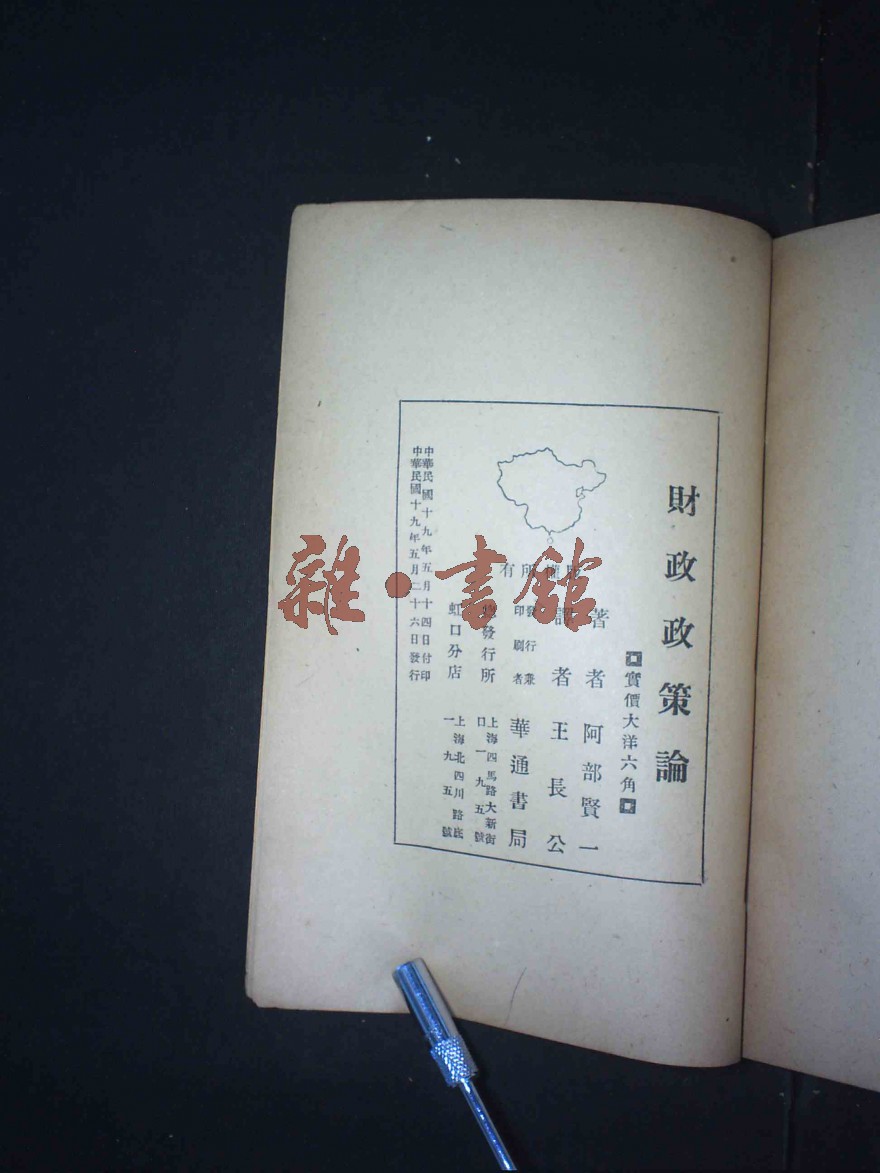 財政政策論
實價大洋六角
著者 阿部賢一
譯者 王長公
發行兼
印刷者
華通書局
總發行所
上海四馬路大新街
口一九五號
虹口分店
上海北四川路底
一九五號
中華民國十九年五月十四日付印
中華民國十九年五月二十六日發行
權所有
雜·書館